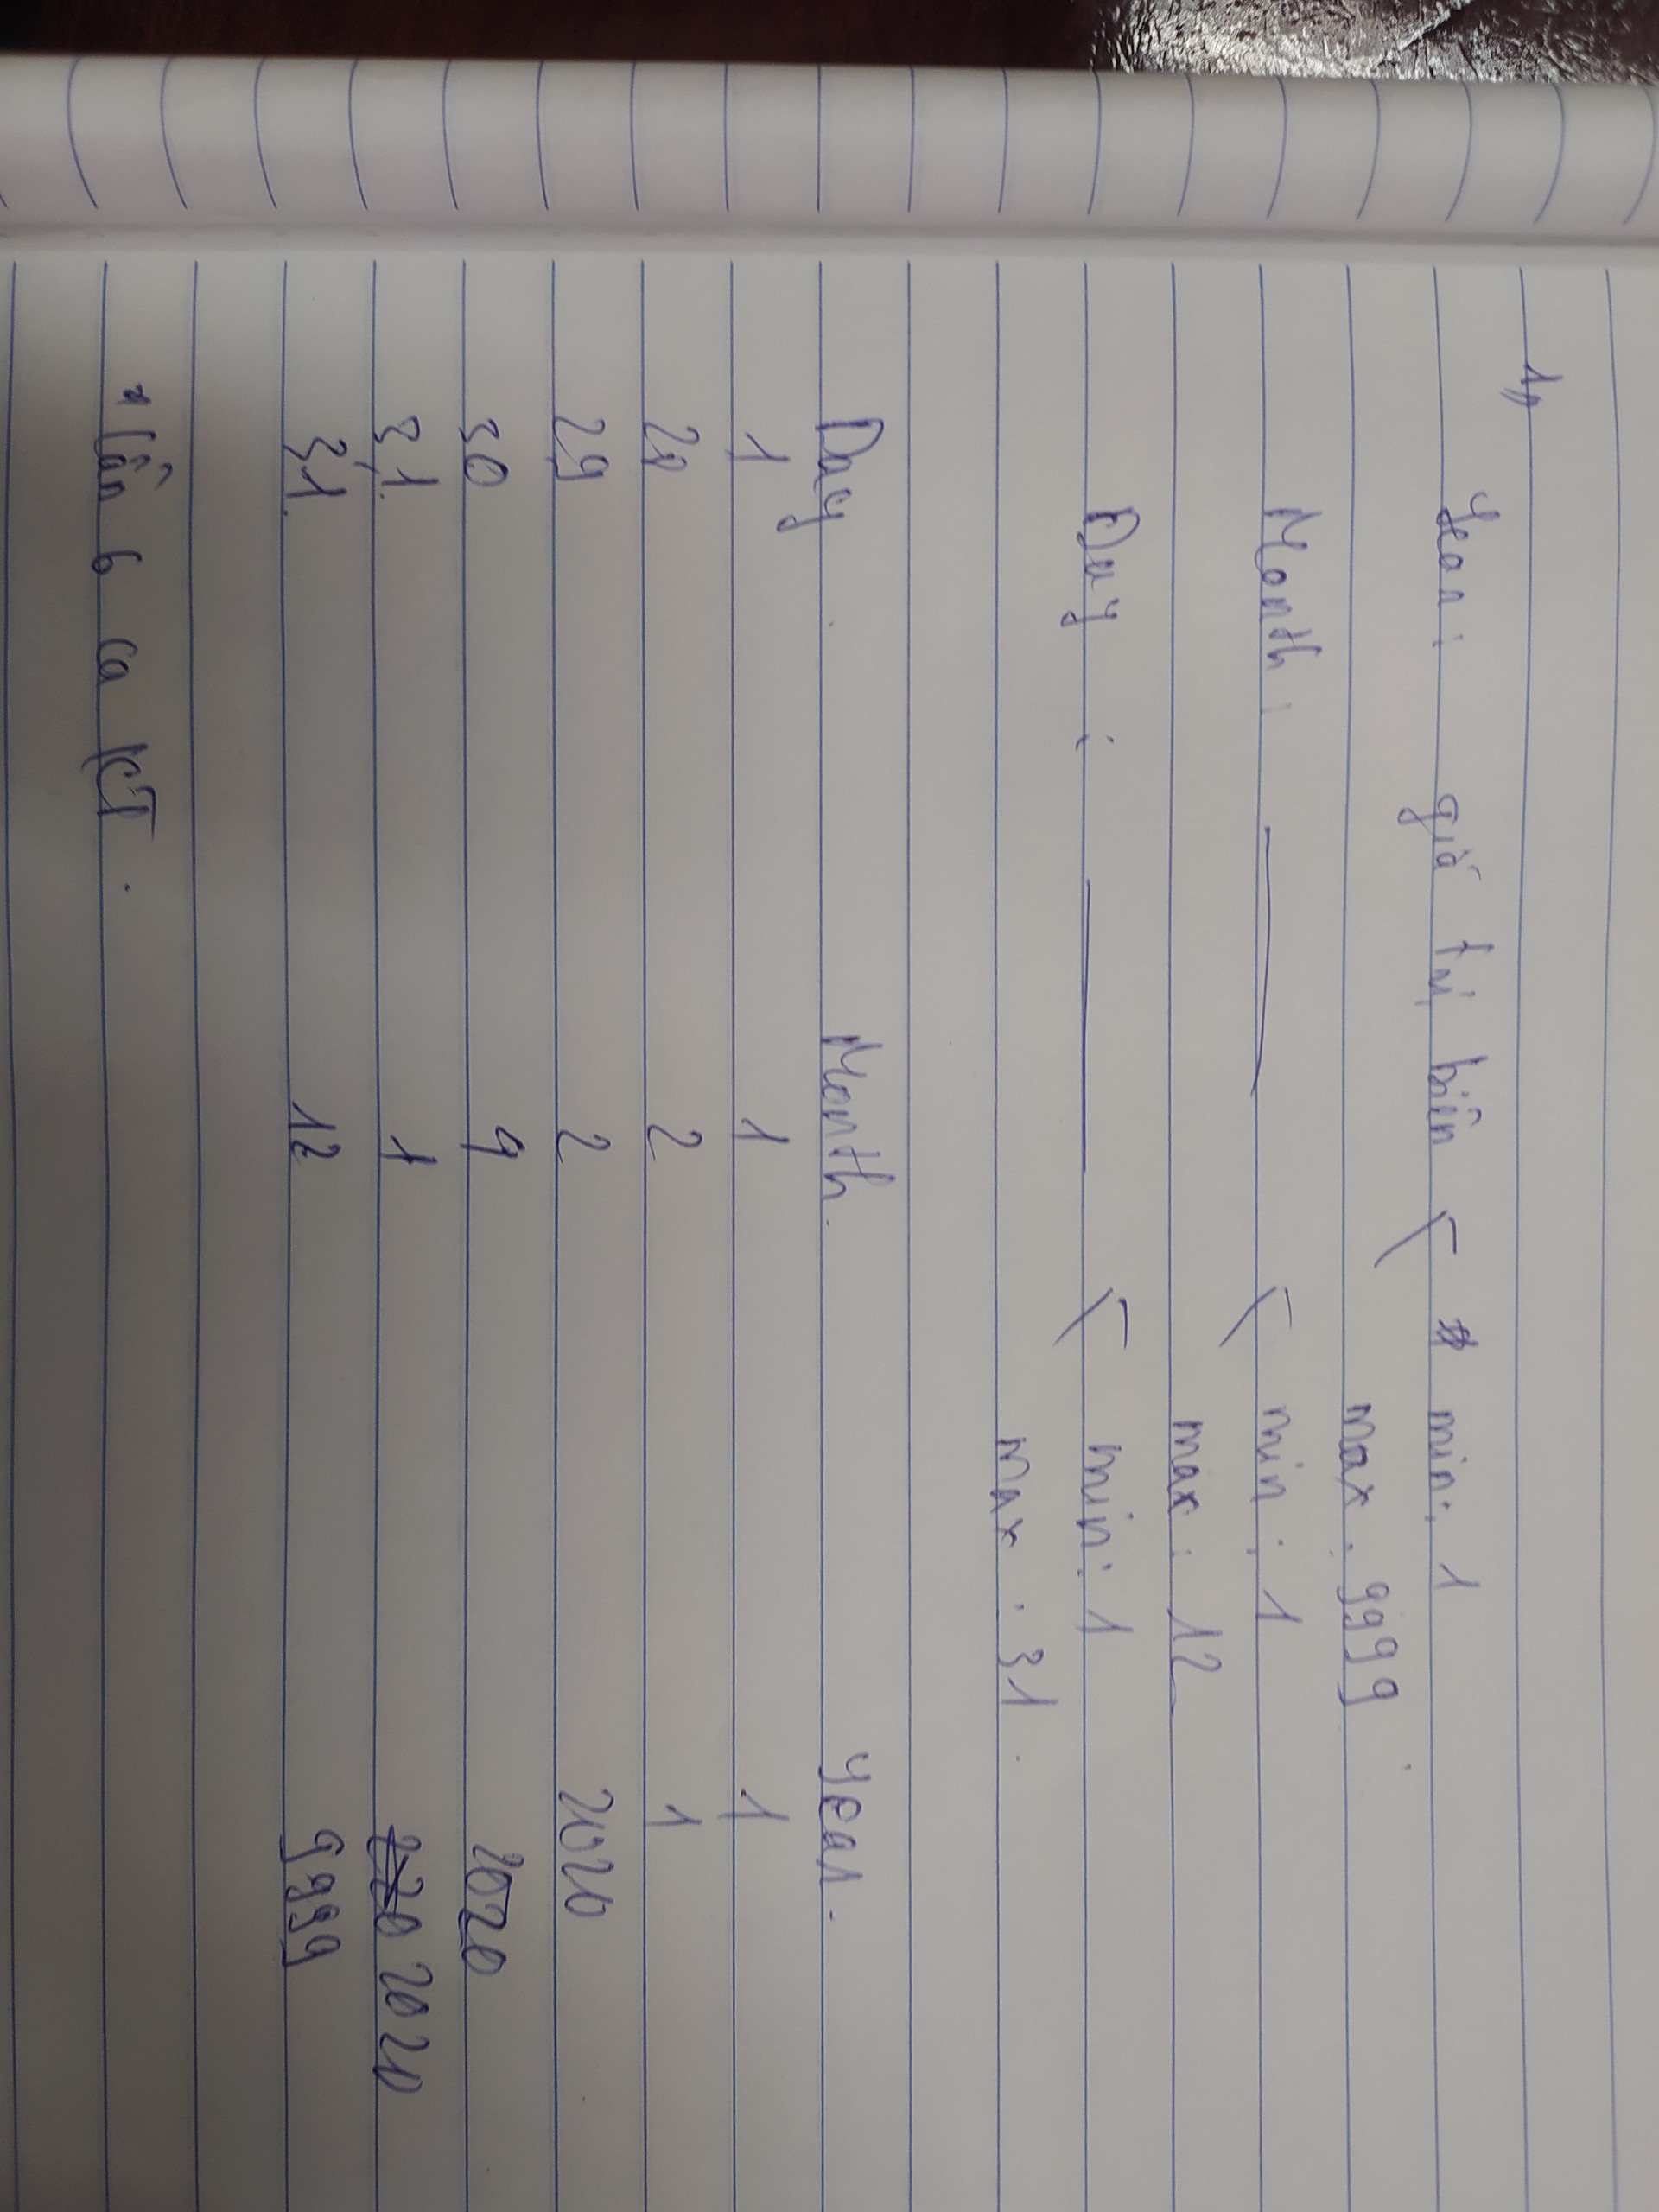 1,,
Year: giá trị biên < min: 1
max: 9999
Month: < min: 1
max: 12
Day: < min: 1
max: 31.
Day Month. Year.
1 1 1
28 2 1
29 2 2020
30 9 2020
31 1 2020
31. 12 9999
* Cần 6 ca KT.